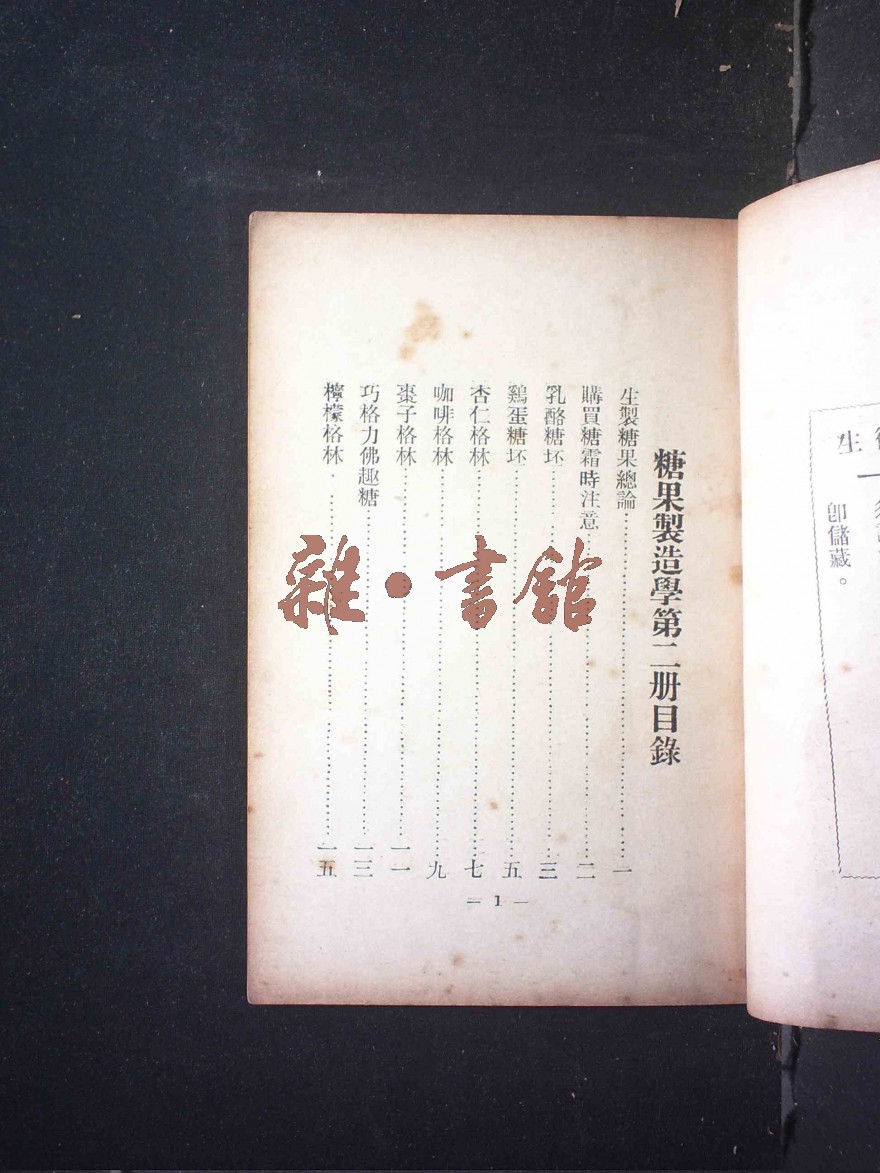 生
即儲藏。
糖果製造學第二册目錄
生製糖果總論……一
購買糖霜時注意……二
乳酪糖坯……三
鷄蛋糖坯……五
杏仁格林……七
咖啡格林……九
棗子格林……一一
巧格力佛趣糖……一三
檸檬格林……一五
— 1 —
雜·書舘